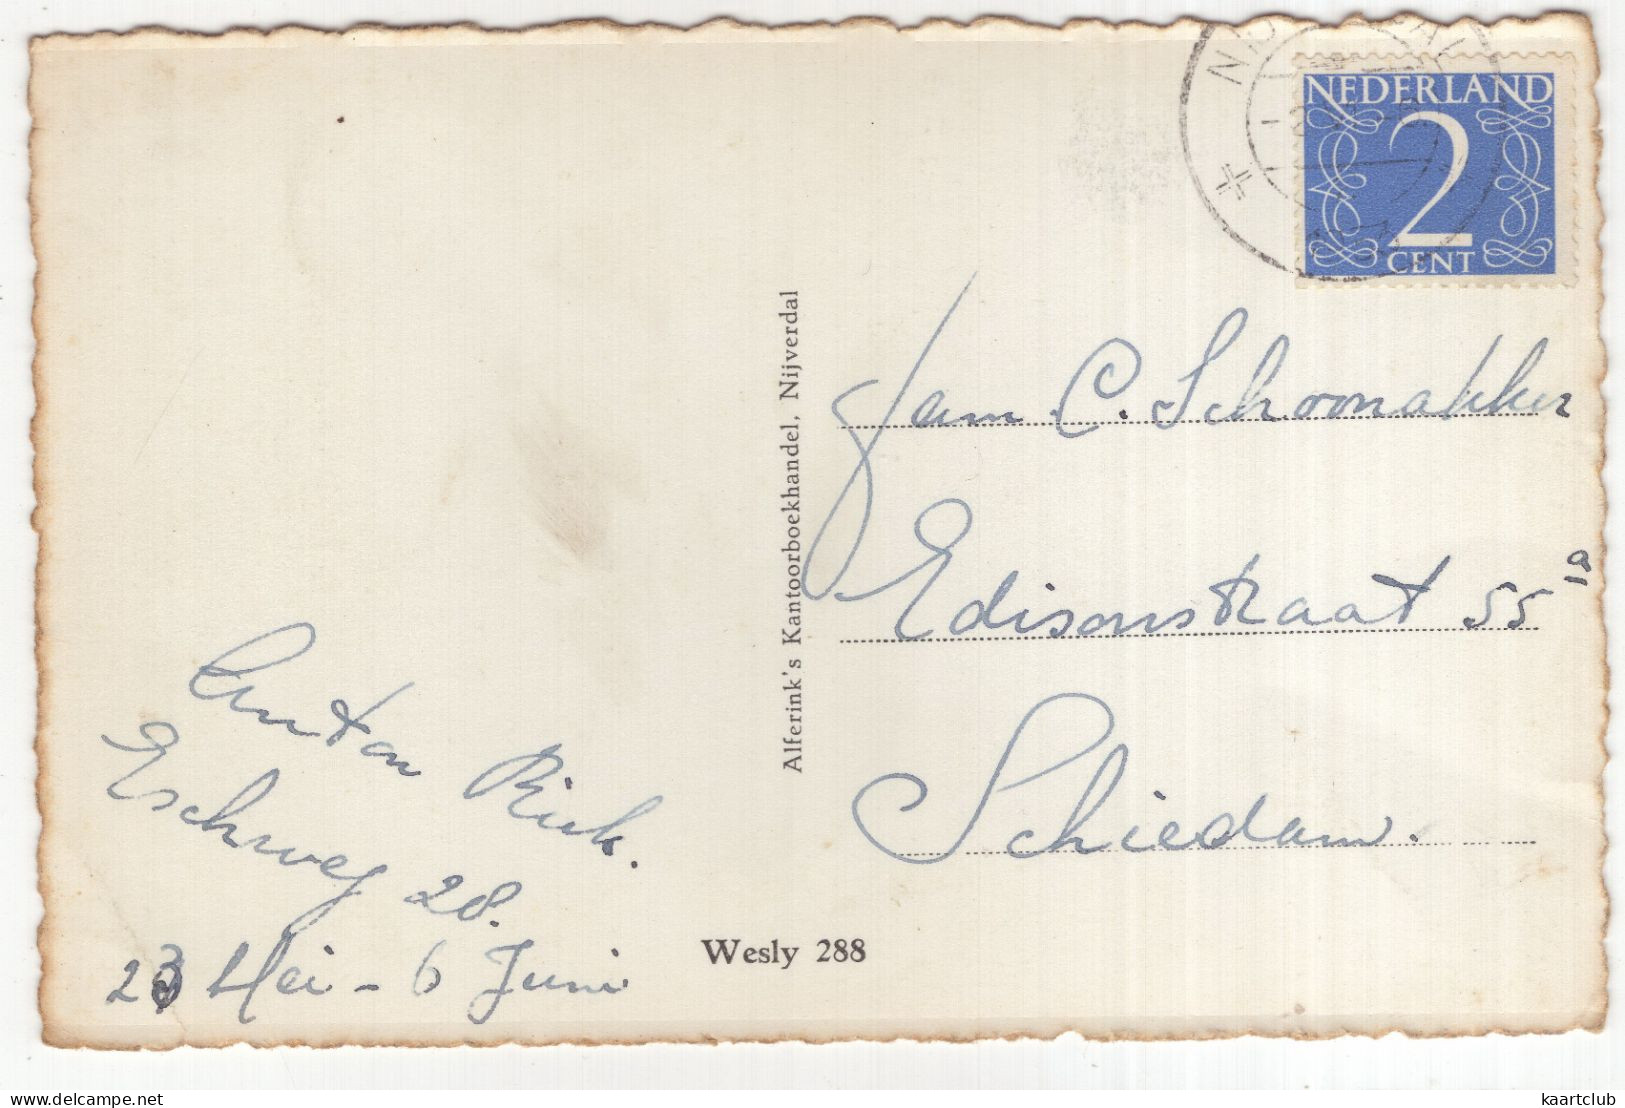 NEDERLAND
2
CENT
Fam. C. Schoonakker
Edisonstraat 55 1a
Schiedam.
Alferink's Kantoorboekhandel, Nijverdal
Anton
Eschweg 28.
23 Mei - 6 Juni
Wesly 288
delcampe.net
kaartclub